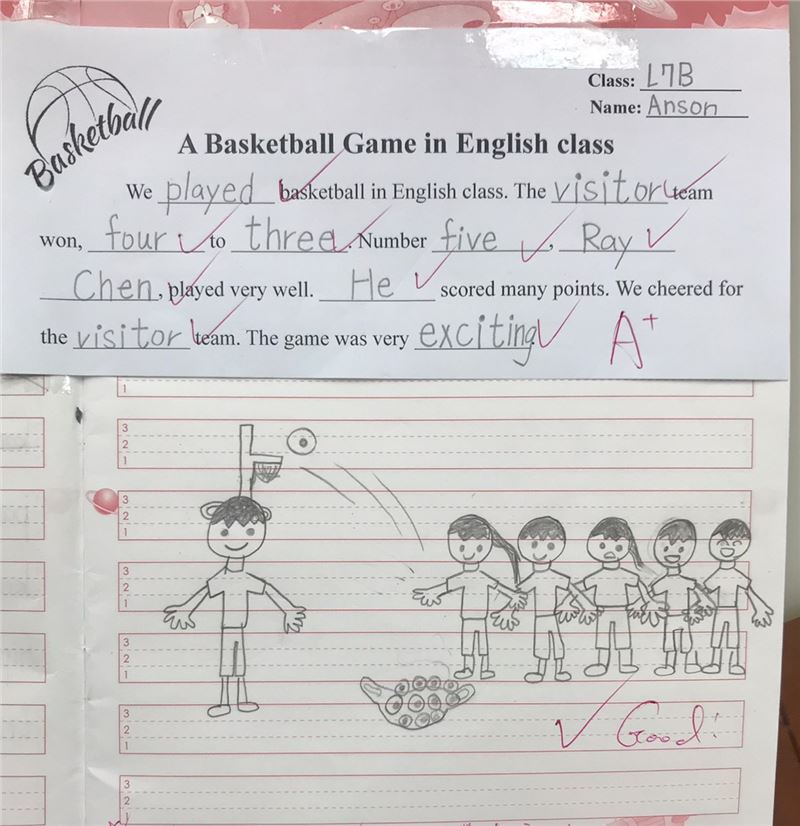 Class: L7B
Name: Anson
Basketball
A Basketball Game in English class
We played basketball in English class. The visitor team
won, four to three. Number five, Ray
Chen, played very well. He scored many points. We cheered for
the visitor team. The game was very exciting.
A+
1
3
2
1
3
2
1
3
2
1
3
2
1
3
2
1
Good!
3
2
1